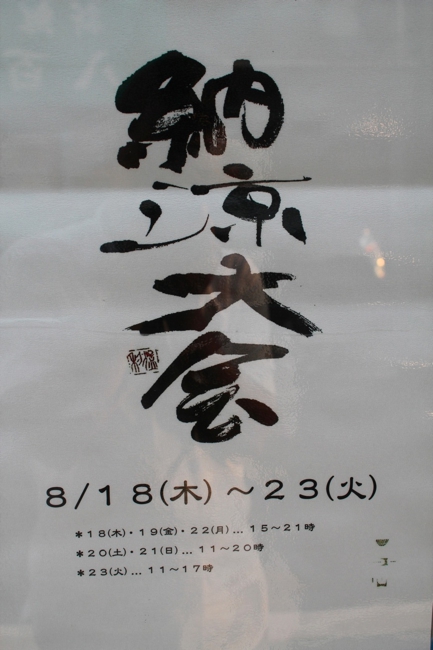 納涼大会
8/18(木)~23(火)
*18(木)・19(金)・22(月)... 15~21時
*20(土)・21(日)... 11~20時
*23(火)... 11~17時